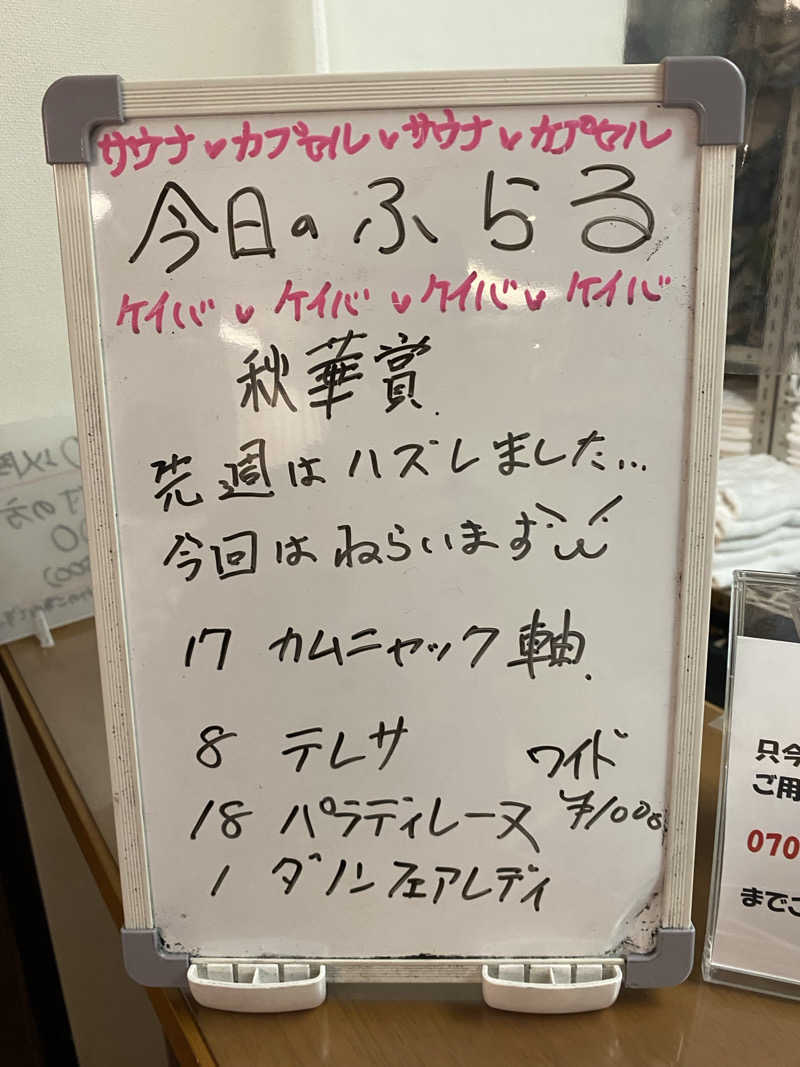 サウナ♥カプセル♥サウナ♥カプセル
今日のふらる
ケイバ♥ケイバ♥ケイバ♥ケイバ
秋華賞
先週はハズしました...
今回はねらいます
17 カムニャック 軸
8 テレサ ワイド
18 パラディレーヌ ¥1000
1 ダノンフェアレディ
只今
ご用
070
までご